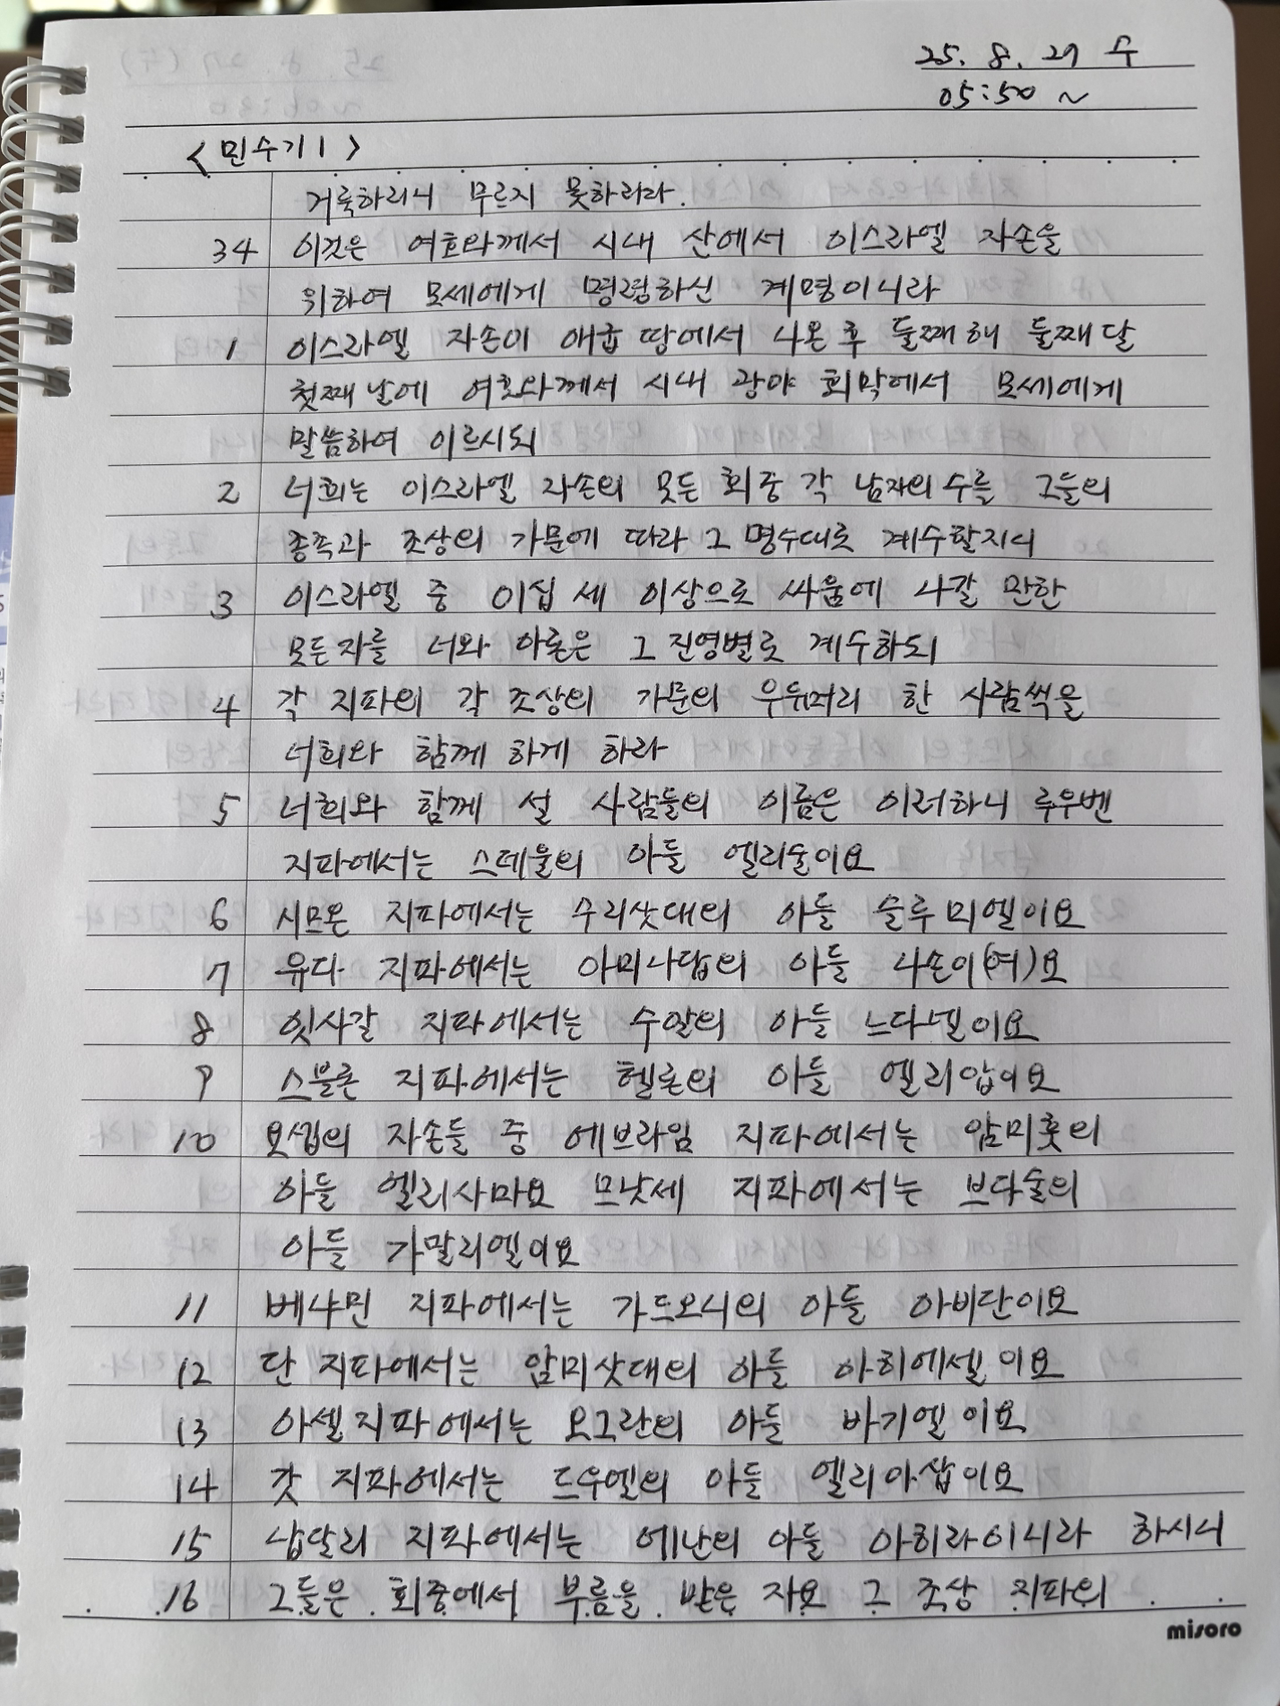 25. 8. 27 수
05:50 ~
<민수기 1>
거룩하리니 무르지 못하리라.
34 이것은 여호와께서 시내 산에서 이스라엘 자손을
위하여 모세에게 명령하신 계명이니라
1 이스라엘 자손이 애굽 땅에서 나온 후 둘째 해 둘째 달
첫째 날에 여호와께서 시내 광야 회막에서 모세에게
말씀하여 이르시되
2 너희는 이스라엘 자손의 모든 회중 각 남자의 수를 그들의
종족과 조상의 가문에 따라 그 명수대로 계수할지니
3 이스라엘 중 이십 세 이상으로 싸움에 나갈 만한
모든 자를 너와 아론은 그 진영별로 계수하되
4 각 지파의 각 조상의 가문의 우두머리 한 사람씩을
너희와 함께 하게 하라
5 너희와 함께 설 사람들의 이름은 이러하니 루우벤
지파에서는 스데울의 아들 엘리술이요
6 시므온 지파에서는 수리삿대의 아들 슬루미엘이요
7 유다 지파에서는 아미나답의 아들 나손이(여)요
8 잇사갈 지파에서는 수알의 아들 느다넬이요
9 스불론 지파에서는 헬론의 아들 엘리압이요
10 요셉의 자손들 중 에브라임 지파에서는 암미훗의
아들 엘리사마요 므낫세 지파에서는 브다술의
아들 가말리엘이요
11 베냐민 지파에서는 기드오니의 아들 아비단이요
12 단 지파에서는 암미삿대의 아들 아히에셀이요
13 아셀 지파에서는 오그란의 아들 바기엘이요
14 갓 지파에서는 드우엘의 아들 엘리아삽이요
15 납달리 지파에서는 에난의 아들 아히라이니라 하시니
16 그들은 회중에서 부름을 받은 자요 그 조상 지파의
misoro